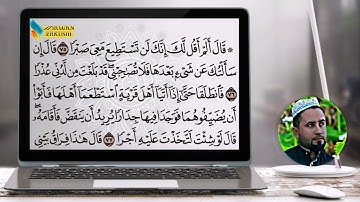 ۞ قَالَ أَلَمْ أَقُل لَّكَ إِنَّكَ لَن تَسْتَطِيعَ مَعِىَ صَبْرًا ٧٥ قَالَ إِن
سَأَلْتُكَ عَن شَىْءٍۭ بَعْدَهَا فَلَا تُصَٰحِبْنِى قَدْ بَلَغْتَ مِن لَّدُنِّى عُذْرًا ٧٦
فَٱنطَلَقَا حَتَّىٰٓ إِذَآ أَتَيَآ أَهْلَ قَرْيَةٍ ٱسْتَطْعَمَآ أَهْلَهَا فَأَبَوْا۟
أَن يُضَيِّفُوهُمَا فَوَجَدَا فِيهَا جِدَارًا يُرِيدُ أَن يَنقَضَّ فَأَقَامَهُۥ
قَالَ لَوْ شِئْتَ لَتَّخَذْتَ عَلَيْهِ أَجْرًا ٧٧ قَالَ هَٰذَا فِرَاقُ بَيْنِى